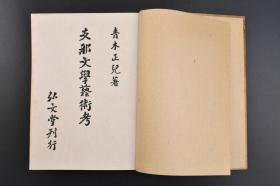 青木正兒著
支那文學藝術考
弘文堂刊行